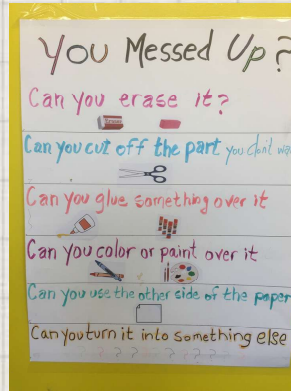 You Messed Up?
Can you erase it?
Can you cut off the part you don't
Can you glue something over it
Can you color or paint over it
Can you use the other side of the paper
Can you turn it into something else
? ? ? ? ? ? ?